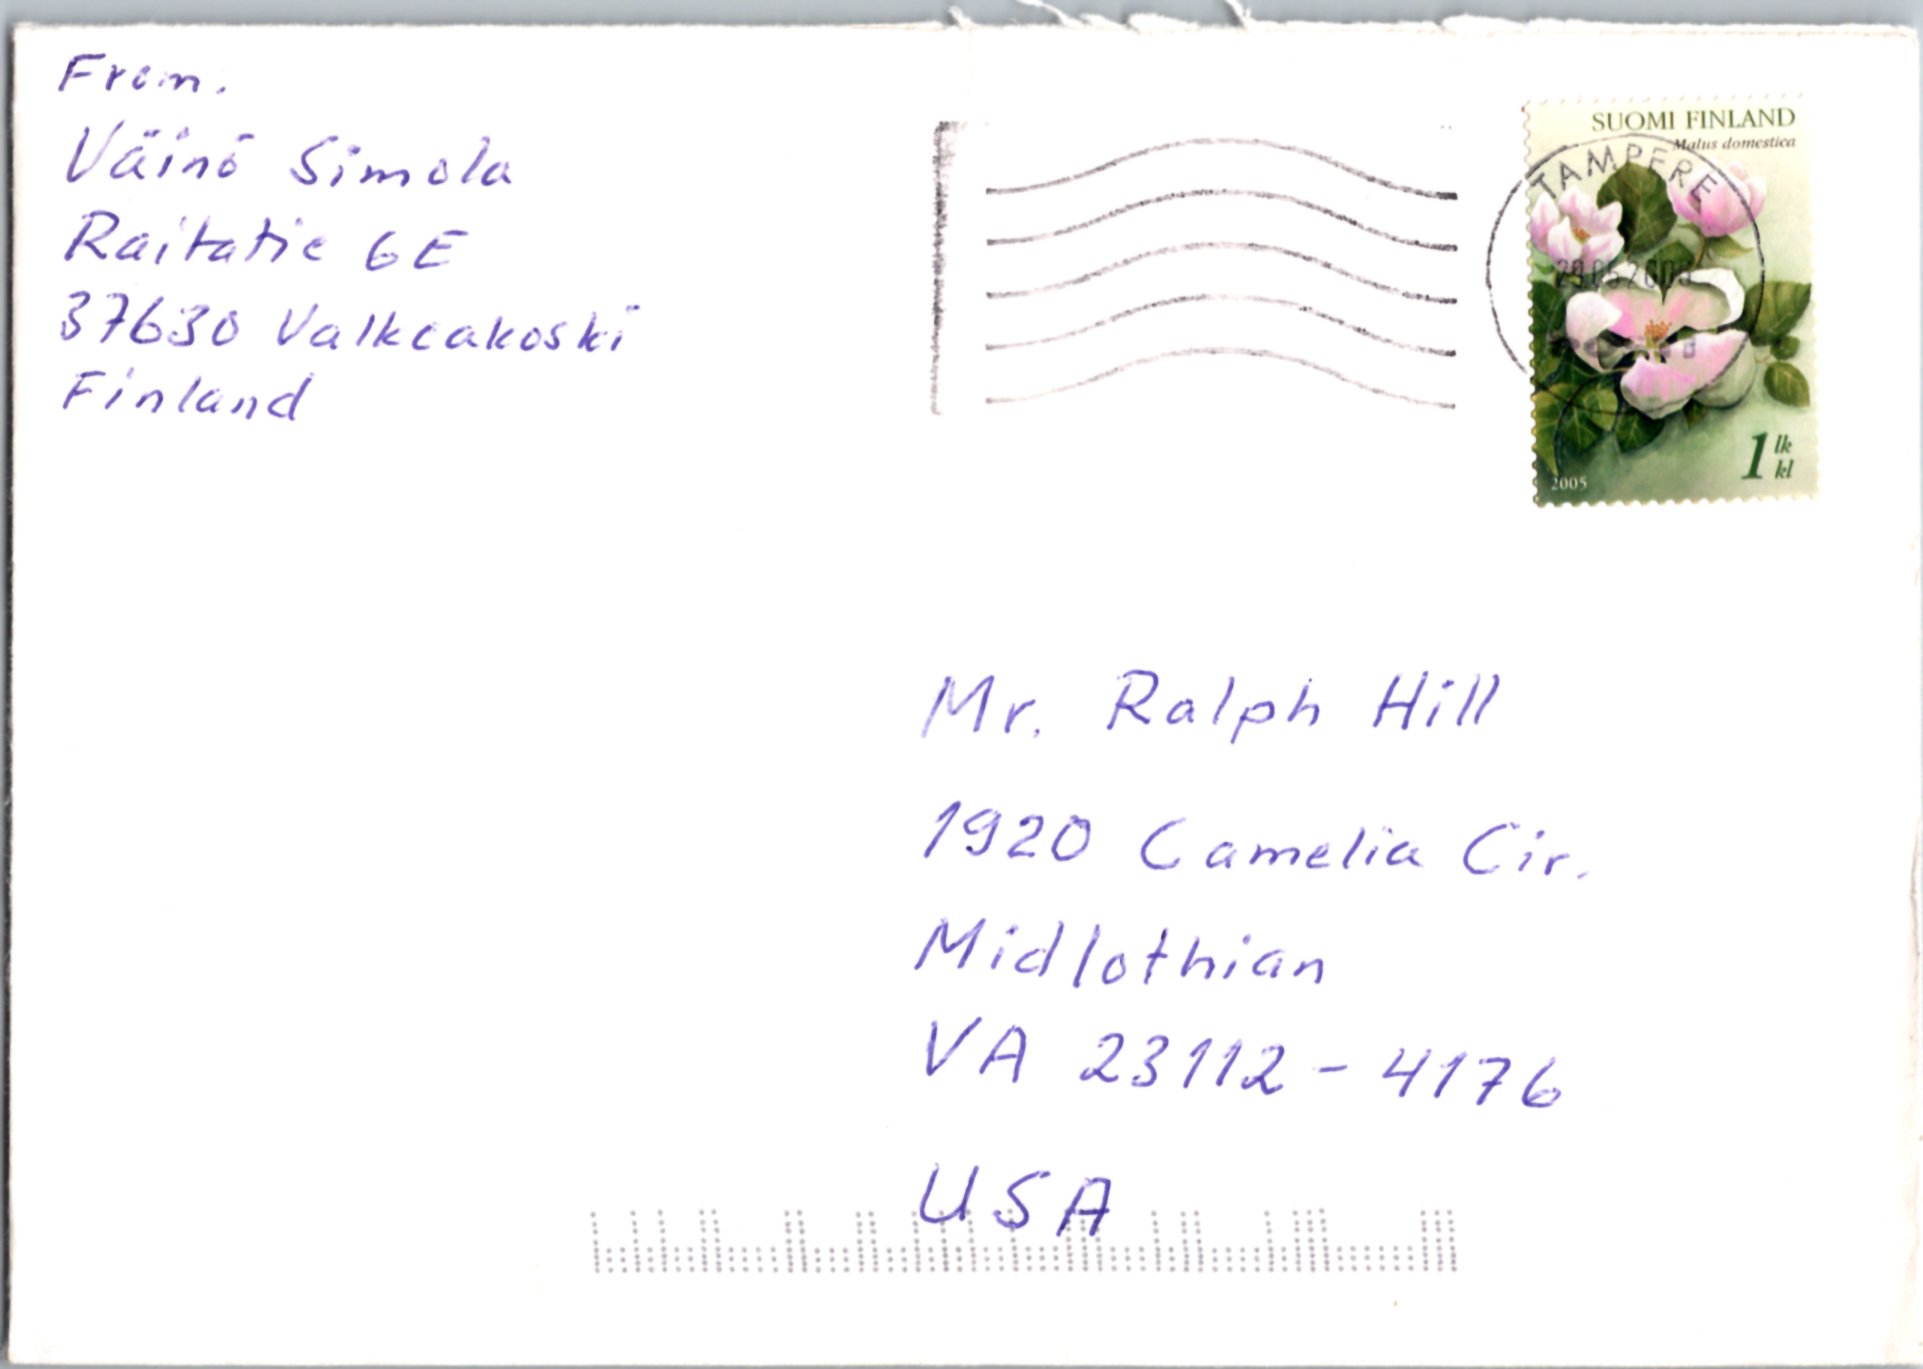 From.
Väinö Simola
Raitatie 6E
37630 Valkeakoski
Finland
SUOMI FINLAND
Malus domestica
TAMPERE
1 lk
kl
2005
Mr. Ralph Hill
1920 Camelia Cir.
Midlothian
VA 23112-4176
USA